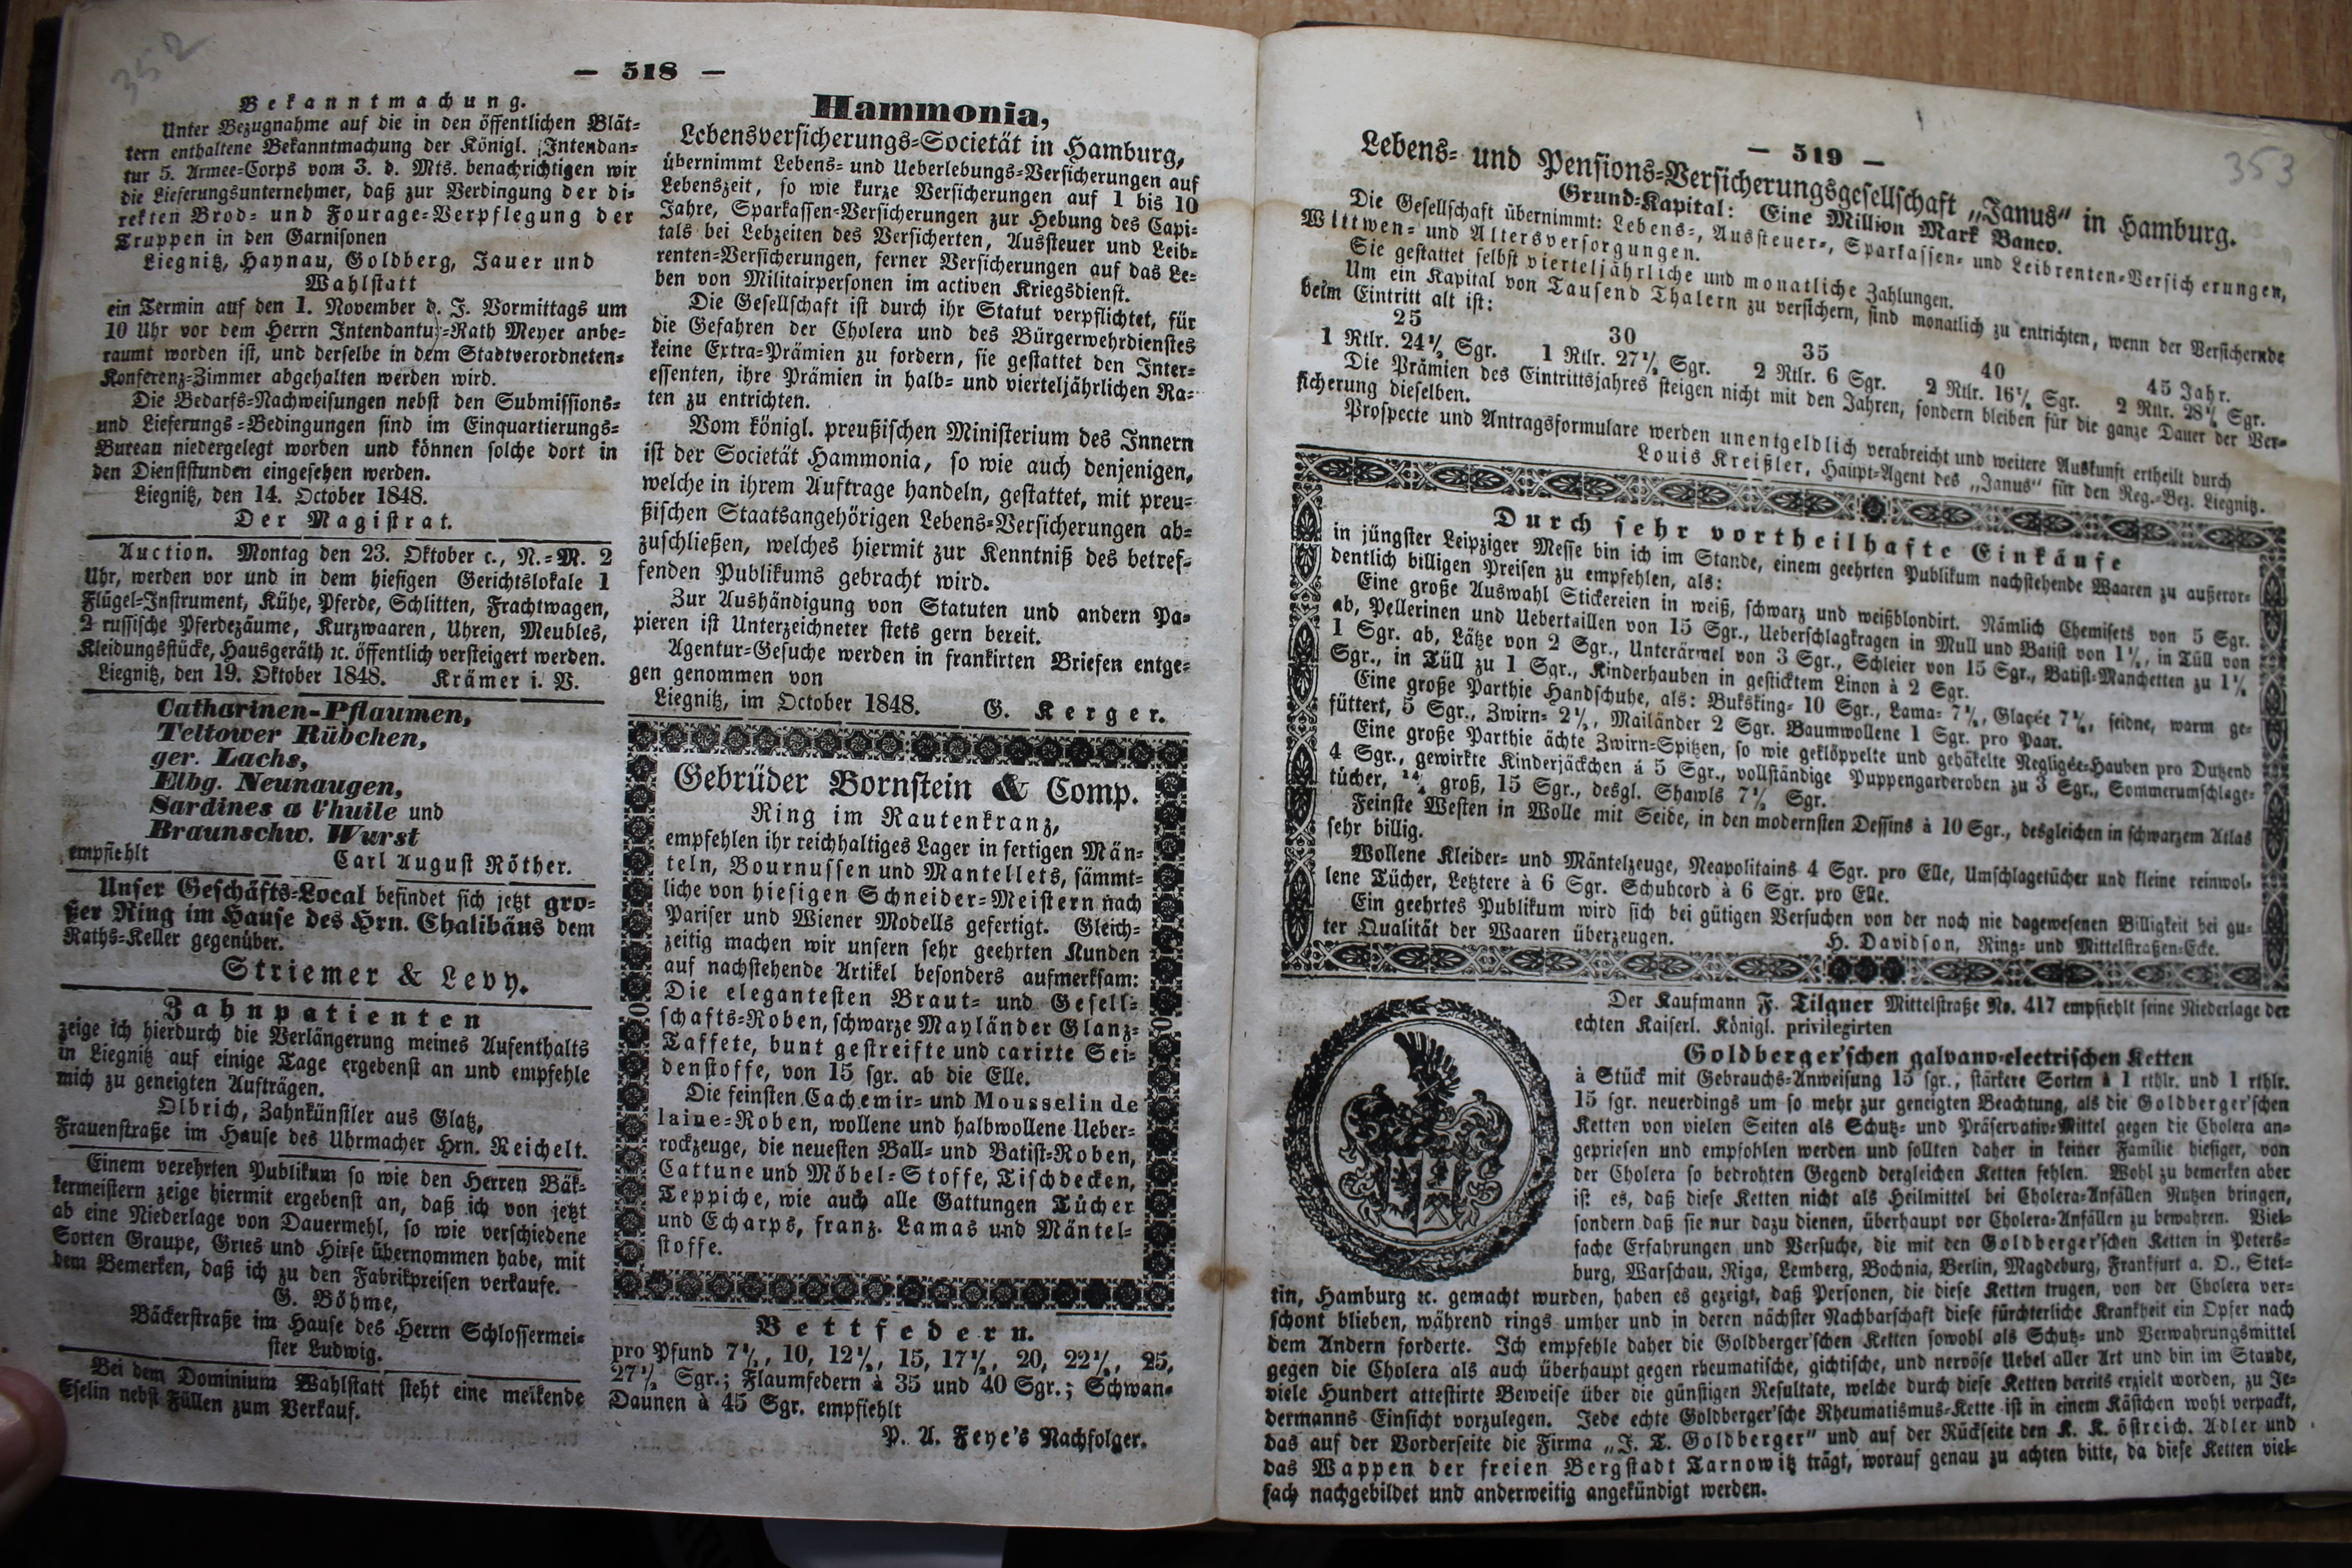 352
— 518 —
Bekanntmachung.
Unter Bezugnahme auf die in den öffentlichen Blät-
tern enthaltene Bekanntmachung der Königl. Intendan-
tur 5. Armee-Corps vom 3. d. Mts. benachrichtigen wir
die Lieferungsunternehmer, daß zur Verdingung der di-
rekten Brod- und Fourage-Verpflegung der
Truppen in den Garnisonen
Liegnitz, Haynau, Goldberg, Jauer und
Wahlstatt
ein Termin auf den 1. November d. J. Vormittags um
10 Uhr vor dem Herrn Intendantur-Rath Meyer anbe-
raumt worden ist, und derselbe in dem Stadtverordneten-
Konferenz-Zimmer abgehalten werden wird.
Die Bedarfs-Nachweisungen nebst den Submissions-
und Lieferungs-Bedingungen sind im Einquartierungs-
Bureau niedergelegt worden und können solche dort in
den Dienststunden eingesehen werden.
Liegnitz, den 14. October 1848.
Der Magistrat.
Auction. Montag den 23. Oktober c., N.-M. 2
Uhr, werden vor und in dem hiesigen Gerichtslokale 1
Flügel-Instrument, Kühe, Pferde, Schlitten, Frachtwagen,
2 russische Pferdezäume, Kurzwaaren, Uhren, Meubles,
Kleidungsstücke, Hausgeräth ꝛc. öffentlich versteigert werden.
Liegnitz, den 19. Oktober 1848. Krämer i. V.
Catharinen-Pflaumen,
Teltower Rübchen,
ger. Lachs,
Elbg. Neunaugen,
Sardines a l'huile und
Braunschw. Wurst
empfiehlt Carl August Röther.
Unser Geschäfts-Local befindet sich jetzt gro-
ßer Ring im Hause des Hrn. Chalibäus dem
Raths-Keller gegenüber.
Striemer & Levy.
Zahnpatienten
zeige ich hierdurch die Verlängerung meines Aufenthalts
in Liegnitz auf einige Tage ergebenst an und empfehle
mich zu geneigten Aufträgen.
Olbrich, Zahnkünstler aus Glatz,
Frauenstraße im Hause des Uhrmacher Hrn. Reichelt.
Einem verehrten Publikum so wie den Herren Bäk-
kermeistern zeige hiermit ergebenst an, daß ich von jetzt
ab eine Niederlage von Dauermehl, so wie verschiedene
Sorten Graupe, Gries und Hirse übernommen habe, mit
dem Bemerken, daß ich zu den Fabrikpreisen verkaufe.
G. Böhme,
Bäckerstraße im Hause des Herrn Schlossermei-
ster Ludwig.
Bei dem Dominium Wahlstatt steht eine melkende
Eselin nebst Füllen zum Verkauf.
Hammonia,
Lebensversicherungs-Societät in Hamburg,
übernimmt Lebens- und Ueberlebungs-Versicherungen auf
Lebenszeit, so wie kurze Versicherungen auf 1 bis 10
Jahre, Sparkassen-Versicherungen zur Hebung des Capi-
tals bei Lebzeiten des Versicherten, Aussteuer und Leib-
renten-Versicherungen, ferner Versicherungen auf das Le-
ben von Militairpersonen im activen Kriegsdienst.
Die Gesellschaft ist durch ihr Statut verpflichtet, für
die Gefahren der Cholera und des Bürgerwehrdienstes
keine Extra-Prämien zu fordern, sie gestattet den Inter-
essenten, ihre Prämien in halb- und vierteljährlichen Ra-
ten zu entrichten.
Vom königl. preußischen Ministerium des Innern
ist der Societät Hammonia, so wie auch denjenigen,
welche in ihrem Auftrage handeln, gestattet, mit preu-
ßischen Staatsangehörigen Lebens-Versicherungen ab-
zuschließen, welches hiermit zur Kenntniß des betref-
fenden Publikums gebracht wird.
Zur Aushändigung von Statuten und andern Pa-
pieren ist Unterzeichneter stets gern bereit.
Agentur-Gesuche werden in frankirten Briefen entge-
gen genommen von
Liegnitz, im October 1848. G. Kerger.
Gebrüder Bornstein & Comp.
Ring im Rautenkranz,
empfehlen ihr reichhaltiges Lager in fertigen Män-
teln, Bournussen und Mantellets, sämmt-
liche von hiesigen Schneider-Meistern nach
Pariser und Wiener Modells gefertigt. Gleich-
zeitig machen wir unsern sehr geehrten Kunden
auf nachstehende Artikel besonders aufmerksam:
Die elegantesten Braut- und Gesell-
schafts-Roben, schwarze Mayländer Glanz-
Taffete, bunt gestreifte und carirte Sei-
denstoffe, von 15 sgr. ab die Elle.
Die feinsten Cachemir- und Mousselin de
laine-Roben, wollene und halbwollene Ueber-
rockzeuge, die neuesten Ball- und Batist-Roben,
Cattune und Möbel-Stoffe, Tischdecken,
Teppiche, wie auch alle Gattungen Tücher
und Echarps, franz. Lamas und Mäntel-
stoffe.
Bettfedern.
pro Pfund 7½, 10, 12½, 15, 17½, 20, 22½, 25,
27½ Sgr.; Flaumfedern à 35 und 40 Sgr.; Schwan-
Daunen à 45 Sgr. empfiehlt
P. A. Feye's Nachfolger.
— 519 —
353
Lebens- und Pensions-Versicherungsgesellschaft „Janus" in Hamburg.
Grund-Kapital: Eine Million Mark Banco.
Die Gesellschaft übernimmt: Lebens-, Aussteuer-, Sparkassen- und Leibrenten-Versicherungen,
Wittwen- und Altersversorgungen.
Sie gestattet selbst vierteljährliche und monatliche Zahlungen.
Um ein Kapital von Tausend Thalern zu versichern, sind monatlich zu entrichten, wenn der Versichernde
beim Eintritt alt ist:
25 30 35 40 45 Jahr.
1 Rtlr. 24½ Sgr. 1 Rtlr. 27½ Sgr. 2 Rtlr. 6 Sgr. 2 Rtlr. 16½ Sgr. 2 Rtlr. 28½ Sgr.
Die Prämien des Eintrittsjahres steigen nicht mit den Jahren, sondern bleiben für die ganze Dauer der Ver-
sicherung dieselben.
Prospecte und Antragsformulare werden unentgeldlich verabreicht und weitere Auskunft ertheilt durch
Louis Kreißler, Haupt-Agent des „Janus" für den Reg.-Bez. Liegnitz.
Durch sehr vortheilhafte Einkäufe
in jüngster Leipziger Messe bin ich im Stande, einem geehrten Publikum nachstehende Waaren zu außeror-
dentlich billigen Preisen zu empfehlen, als:
Eine große Auswahl Stickereien in weiß, schwarz und weißblondirt. Nämlich Chemisets von 5 Sgr.
ab, Pellerinen und Uebertaillen von 15 Sgr., Ueberschlagkragen in Mull und Batist von 1½, in Tüll von
1 Sgr. ab, Lätze von 2 Sgr., Unterärmel von 3 Sgr., Schleier von 15 Sgr., Batist-Manchetten zu 1½
Sgr., in Tüll zu 1 Sgr., Kinderhauben in gesticktem Linon à 2 Sgr.
Eine große Parthie Handschuhe, als: Buksking- 10 Sgr., Lama- 7½, Glaçée 7½, seidne, warm ge-
füttert, 5 Sgr., Zwirn- 2½, Mailänder 2 Sgr. Baumwollene 1 Sgr. pro Paar.
Eine große Parthie ächte Zwirn-Spitzen, so wie geklöppelte und gehäkelte Negligée-Hauben pro Dutzend
4 Sgr., gewirkte Kinderjäckchen á 5 Sgr., vollständige Puppengarderoben zu 3 Sgr., Sommerumschlage-
tücher, groß, 15 Sgr., desgl. Shawls 7½ Sgr.
Feinste Westen in Wolle mit Seide, in den modernsten Dessins à 10 Sgr., desgleichen in schwarzem Atlas
sehr billig.
Wollene Kleider- und Mäntelzeuge, Neapolitains 4 Sgr. pro Elle, Umschlagetücher und kleine reinwol-
lene Tücher, Letztere à 6 Sgr. Schubcord à 6 Sgr. pro Elle.
Ein geehrtes Publikum wird sich bei gütigen Versuchen von der noch nie dagewesenen Billigkeit bei gu-
ter Qualität der Waaren überzeugen. H. Davidson, Ring- und Mittelstraßen-Ecke.
Der Kaufmann F. Tilgner Mittelstraße No. 417 empfiehlt seine Niederlage der
echten Kaiserl. Königl. privilegirten
Goldberger'schen galvano-electrischen Ketten
à Stück mit Gebrauchs-Anweisung 15 sgr., stärkere Sorten à 1 rthlr. und 1 rthlr.
15 sgr. neuerdings um so mehr zur geneigten Beachtung, als die Goldberger'schen
Ketten von vielen Seiten als Schutz- und Präservativ-Mittel gegen die Cholera an-
gepriesen und empfohlen werden und sollten daher in keiner Familie hiesiger, von
der Cholera so bedrohten Gegend dergleichen Ketten fehlen. Wohl zu bemerken aber
ist es, daß diese Ketten nicht als Heilmittel bei Cholera-Anfällen Nutzen bringen,
sondern daß sie nur dazu dienen, überhaupt vor Cholera-Anfällen zu bewahren. Viel-
fache Erfahrungen und Versuche, die mit den Goldberger'schen Ketten in Peters-
burg, Warschau, Riga, Lemberg, Bochnia, Berlin, Magdeburg, Frankfurt a. O., Stet-
tin, Hamburg ꝛc. gemacht wurden, haben es gezeigt, daß Personen, die diese Ketten trugen, von der Cholera ver-
schont blieben, während rings umher und in deren nächster Nachbarschaft diese fürchterliche Krankheit ein Opfer nach
dem Andern forderte. Ich empfehle daher die Goldberger'schen Ketten sowohl als Schutz- und Verwahrungsmittel
gegen die Cholera als auch überhaupt gegen rheumatische, gichtische, und nervöse Uebel aller Art und bin im Stande,
viele Hundert attestirte Beweise über die günstigen Resultate, welche durch diese Ketten bereits erzielt worden, zu Je-
dermanns Einsicht vorzulegen. Jede echte Goldberger'sche Rheumatismus-Kette ist in einem Kästchen wohl verpackt,
das auf der Vorderseite die Firma „J. T. Goldberger" und auf der Rückseite den K. K. östreich. Adler und
das Wappen der freien Bergstadt Tarnowitz trägt, worauf genau zu achten bitte, da diese Ketten viel-
fach nachgebildet und anderweitig angekündigt werden.